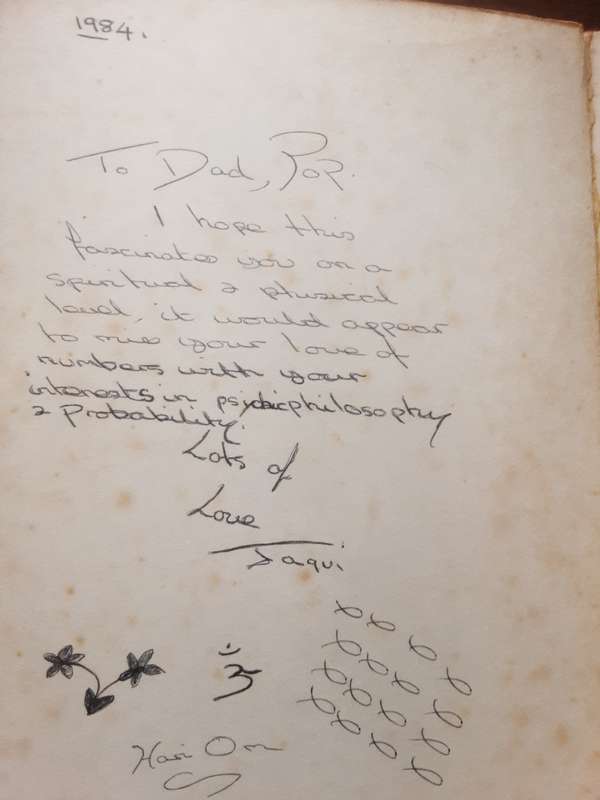 1984.
To Dad, Pop.
I hope this
fascinates you on a
spiritual & physical
level, it would appear
to me your love of
numbers with your
interests in psychic philosophy
& Probability.
Lots of
Love
Jaqui
ॐ
Hari Om